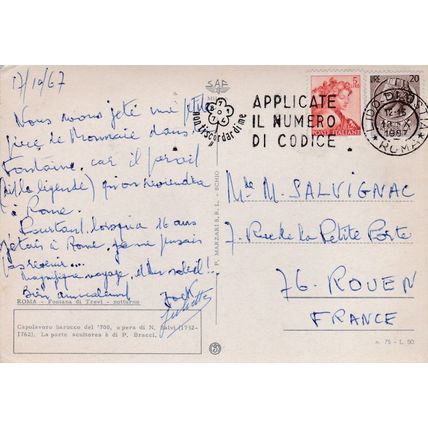 17/10/67
Nous avons jeté une petite
pièce de Monnaie dans la
Fontaine, car il paraît
(dit la légende) qu'on reviendra
à Rome.
Pourtant, lorsque 16 ans
j'étais à Rome,
pas revenir...
Magnifique voyage, et du soleil!!
Bien amicalement
Jack
Juliette
ROMA - Fontana di Trevi - notturno
Capolavoro barocco del '700, opera di N. Salvi (1732-
1762). La parte scultorea è di P. Bracci.
SAF
P. MARZARI S.R.L. - SCHIO
Non ti scordar di me
APPLICATE
IL NUMERO
DI CODICE
5
POSTE ITALIANE
LIRE 20
LIDO DI OSTIA
12-15
1967
ROMA
M. SALVIGNAC
7. Rue de la Petite Porte
76. ROUEN
FRANCE
n. 75 - L. 50